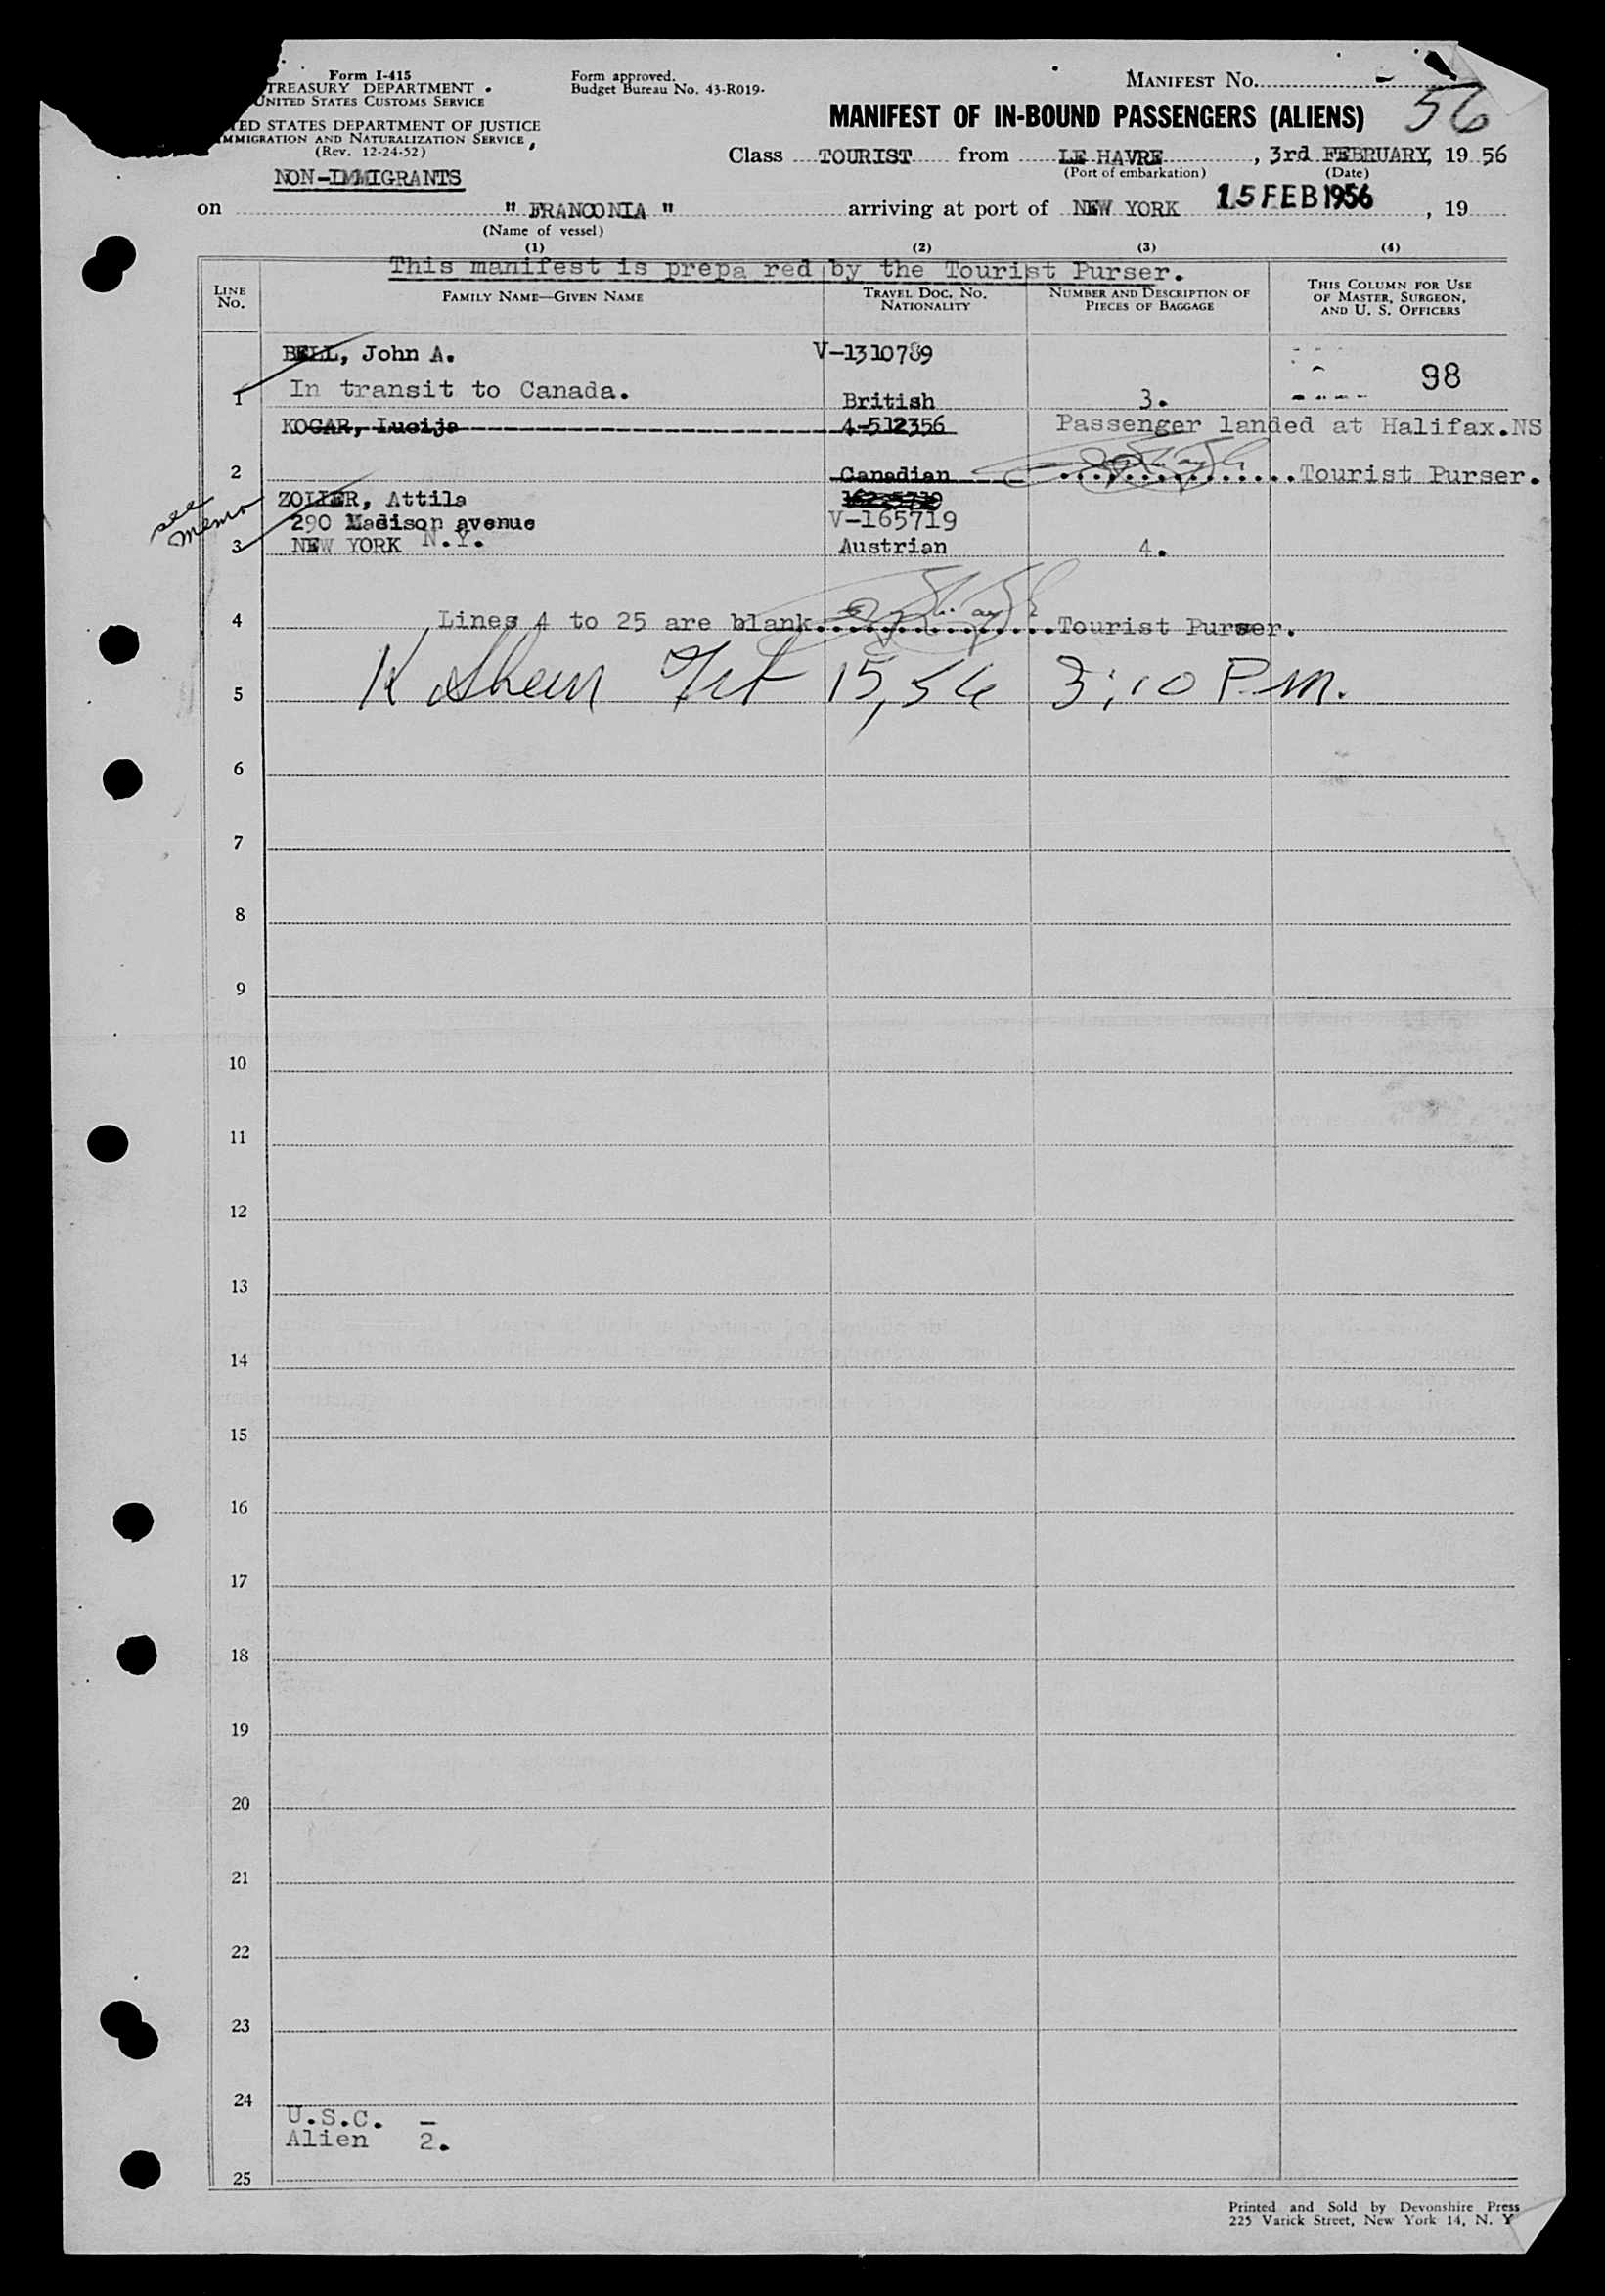 Form I-415
TREASURY DEPARTMENT
UNITED STATES CUSTOMS SERVICE
Form approved.
Budget Bureau No. 43-R019.
MANIFEST NO.
56
STATES DEPARTMENT OF JUSTICE
IMMIGRATION AND NATURALIZATION SERVICE
(Rev. 12-24-52)
MANIFEST OF IN-BOUND PASSENGERS (ALIENS)
NON-IMMIGRANTS
Class TOURIST from LE HAVRE, 3rd FEBRUARY, 19 56
(Port of embarkation) (Date)
on " FRANCONIA " arriving at port of NEW YORK 15 FEB 1956, 19
(Name of vessel)
(1) (2) (3) (4)
This manifest is prepa red by the Tourist Purser.
LINE No. FAMILY NAME—GIVEN NAME TRAVEL DOC. NO. NATIONALITY NUMBER AND DESCRIPTION OF PIECES OF BAGGAGE THIS COLUMN FOR USE OF MASTER, SURGEON, AND U. S. OFFICERS
BELL, John A. V-1310789
98
1 In transit to Canada. British 3.
KOGAR, Lucija 4-512356 Passenger landed at Halifax.NS
2 Canadian Tourist Purser.
see memo
ZOLLER, Attila
290 Madison avenue V-165719
3 NEW YORK N.Y. Austrian 4.
4 Lines 4 to 25 are blank Tourist Purser.
5 K Shein 15, 56 3:10 P.M.
6
7
8
9
10
11
12
13
14
15
16
17
18
19
20
21
22
23
24
U.S.C. –
Alien 2.
25
Printed and Sold by Devonshire Press
225 Varick Street, New York 14, N. Y